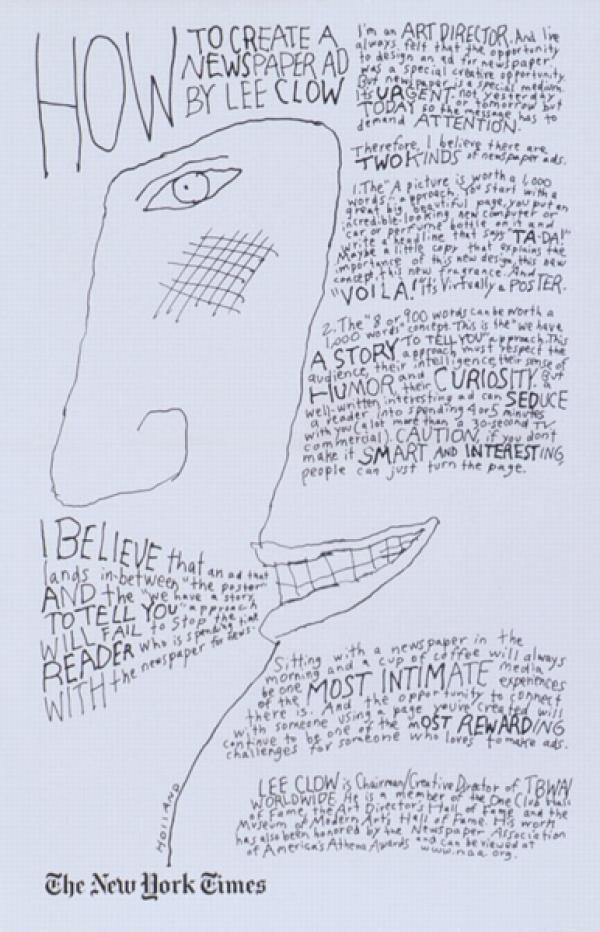 HOW
TO CREATE A
NEWSPAPER AD
BY LEE CLOW
I'm an ART DIRECTOR. And I've
always felt that the opportunity
to design an ad for newspaper
was a special creative opportunity.
But newspaper is a special medium.
It's URGENT. not yesterday
TODAY or tomorrow but
so the message has to
demand ATTENTION.
Therefore, I believe there are
TWO KINDS of newspaper ads.
1. The "A picture is worth a 1,000
words" approach. You start with a
great big beautiful page, you put an
incredible-looking new computer or
car or perfume bottle on it and
write a headline that says "TA-DA!"
Maybe a little copy that explains the
importance of this new design, this new
concept, this new fragrance. And
"VOILA!" It's Virtually a POSTER.
2. The "8 or 900 words can be worth a
1,000 words" concept. This is the "we have
A STORY TO TELL YOU" approach. This
approach must respect the
audience, their intelligence, their sense of
HUMOR and their CURIOSITY. But a
well-written interesting ad can SEDUCE
a reader into spending 4 or 5 minutes
with you (a lot more than a 30-second TV
commercial). CAUTION, if you don't
make it SMART AND INTERESTING,
people can just turn the page.
I BELIEVE that an ad that
lands in-between "the poster"
AND the "we have a story
TO TELL YOU" approach
WILL FAIL to stop the
READER who is spending time
WITH the newspaper for news.
Sitting with a newspaper in the
morning and a cup of coffee will always
be one of the MOST INTIMATE media experiences
there is. And the opportunity to connect
with someone using a page you've created will
continue to be one of the MOST REWARDING
challenges for someone who loves to make ads.
LEE CLOW is Chairman/Creative Director of TBWA\
WORLDWIDE. He is a member of the One Club Hall
of Fame, the Art Directors Hall of Fame and the
Museum of Modern Arts Hall of Fame. His work
has also been honored by the Newspaper Association
of America's Athena Awards and can be viewed at
www.naa.org.
HOLLAND
The New York Times